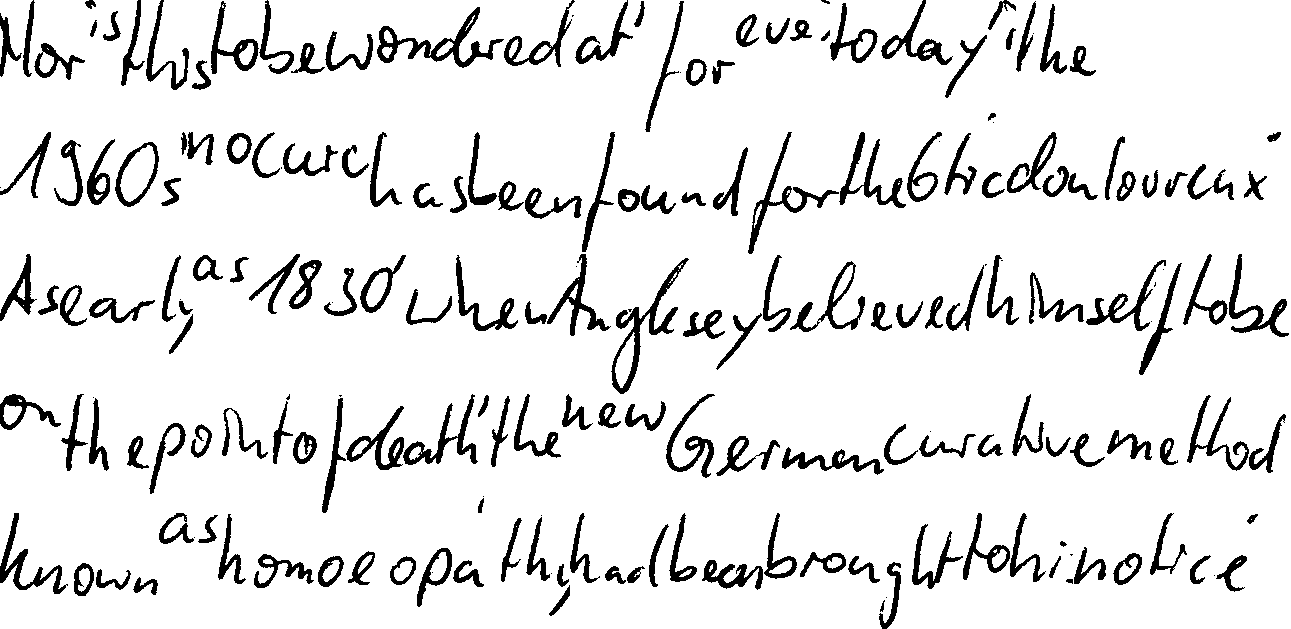 Nor is this to be wondered at for eve today in the
1960s no cure has been found for the tic douloureux
As early as 1830 when Anglesey believed himself to be
on the point of death the new German curative method
known as homoeopathy had been brought to hi notice